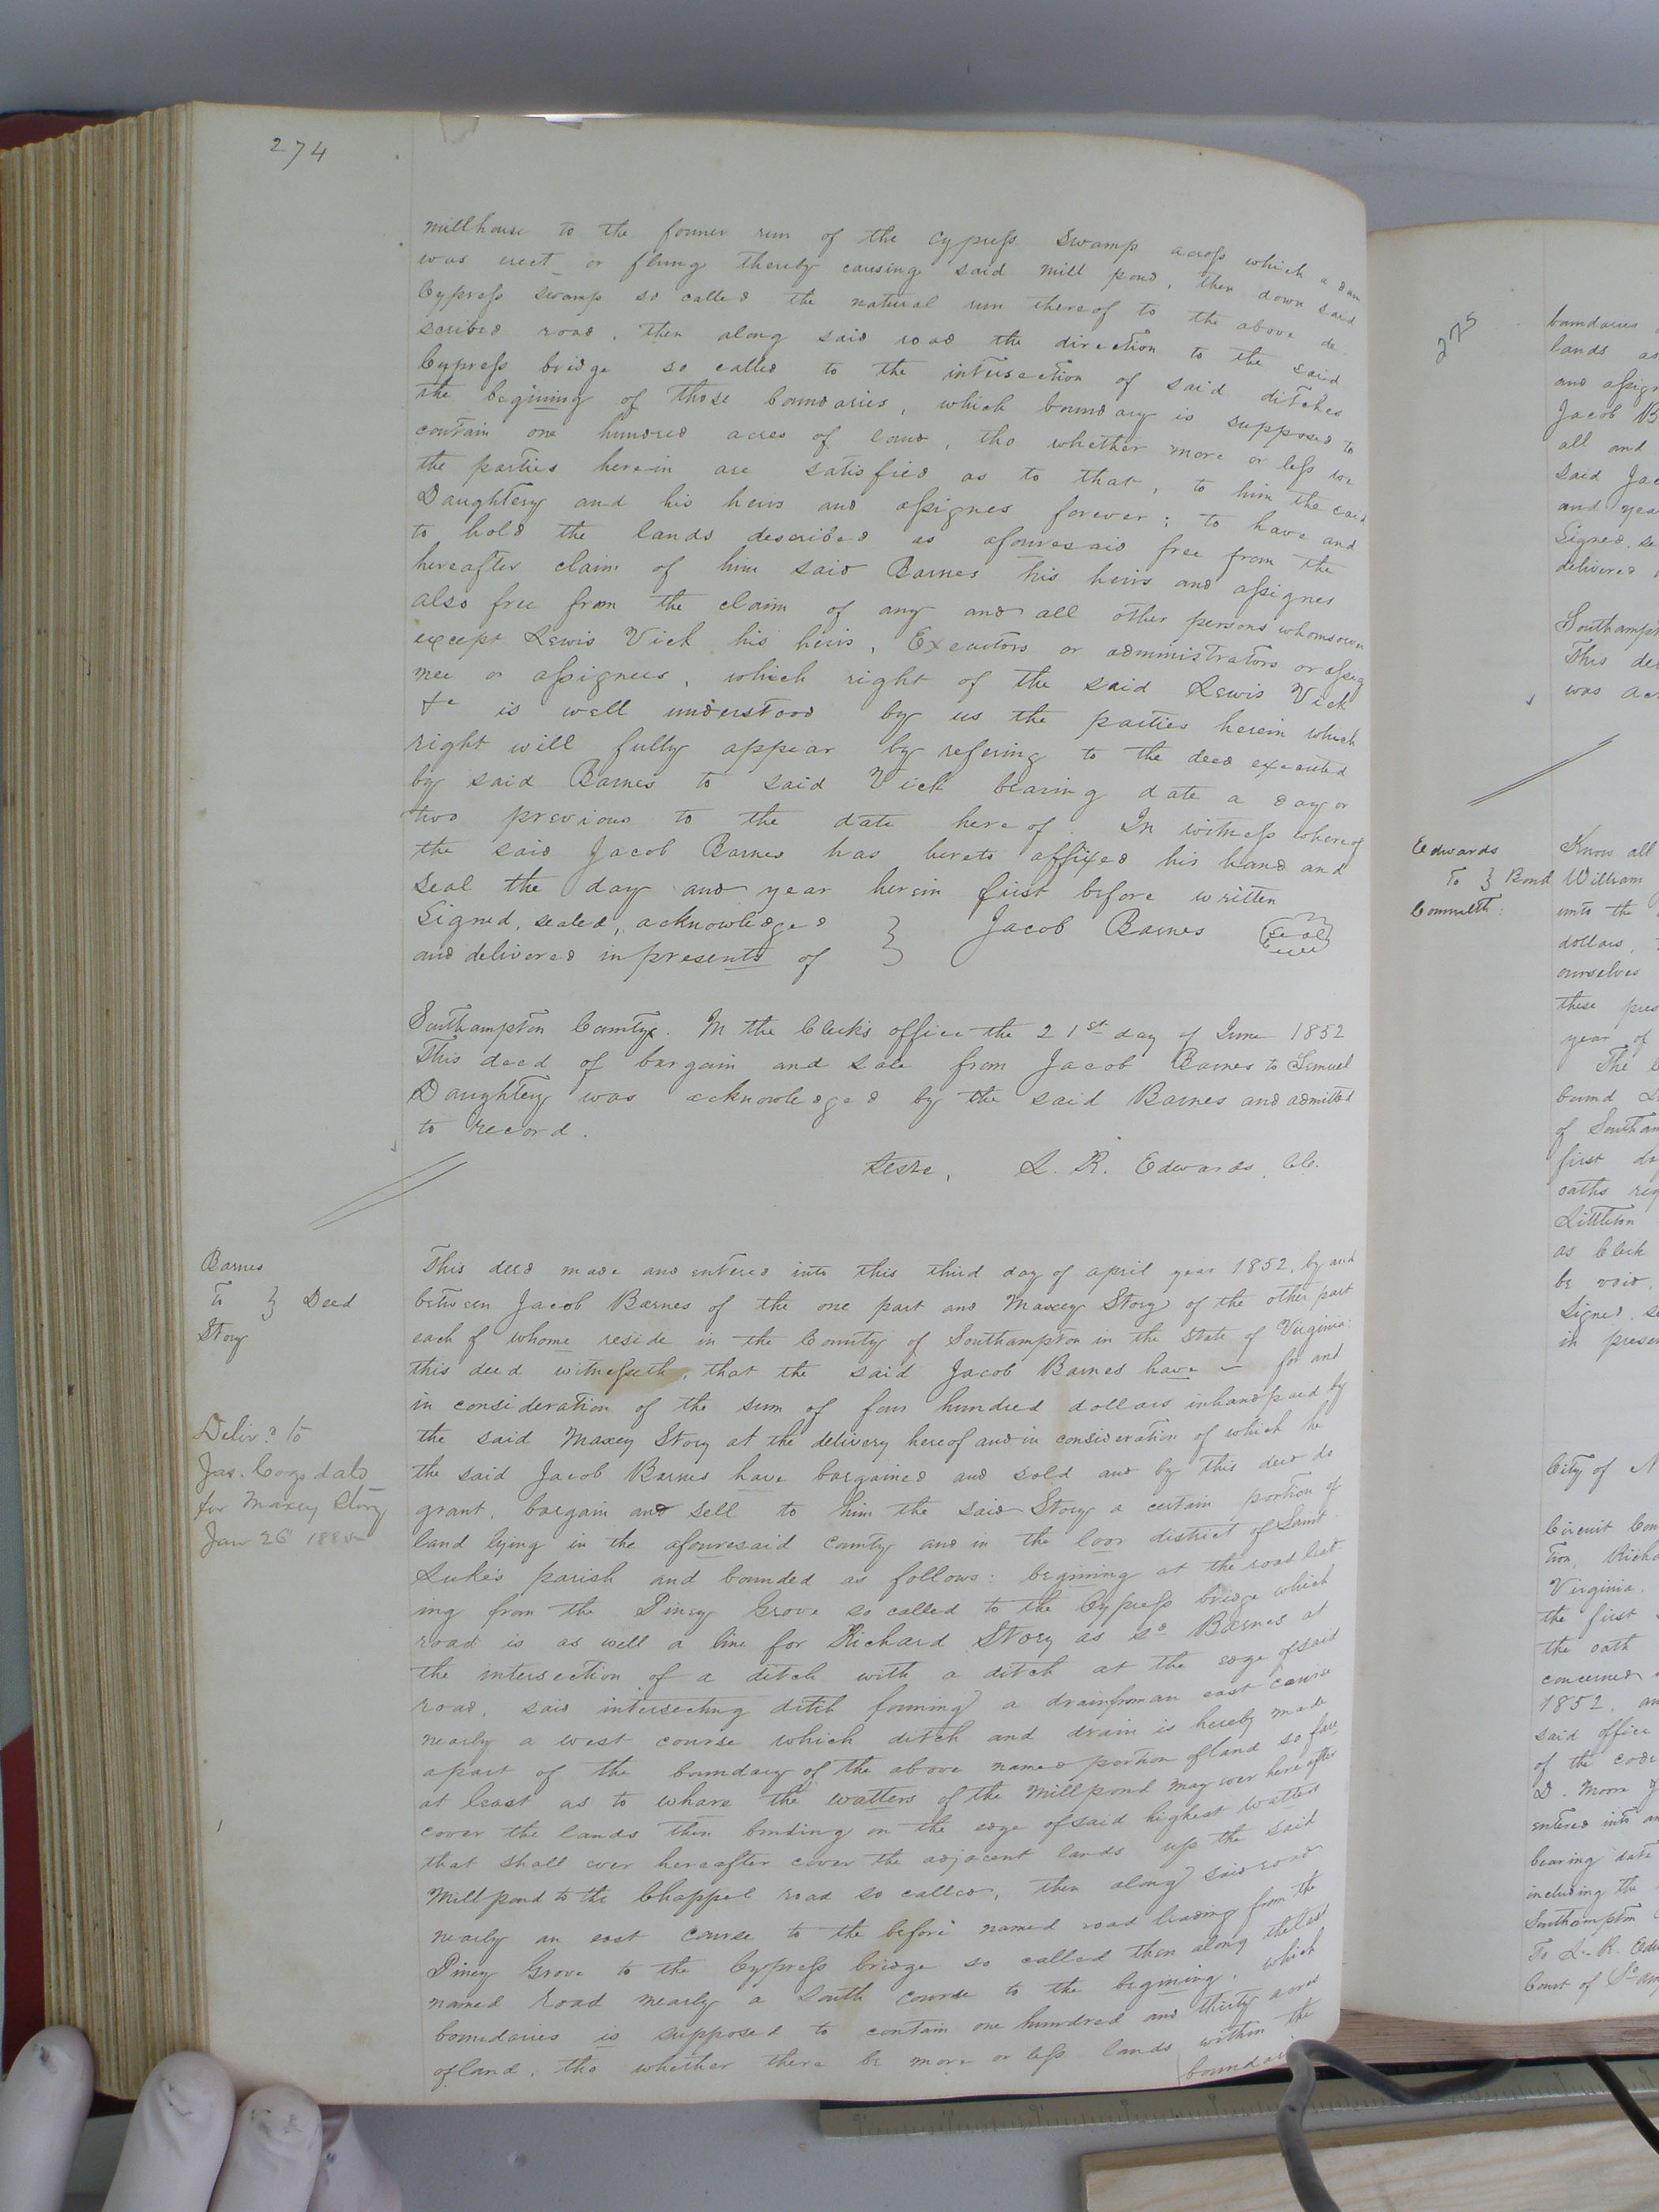 274
millhouse to the former run of the Cypress Swamp across which a dam
was erect or flung thereby causing said mill pond, then down said
Cypress swamp so called the natural run thereof to the above de-
scribed road, then along said road the direction to the said
Cypress bridge so called to the intersection of said ditches
the begining of those boundaries, which boundary is supposed to
contain one hundred acres of land, tho whether more or less we
the parties herein are satisfied as to that, to him the said
Daughtery and his heirs and assignes forever; to have and
to hold the lands described as afouresaid free from the
hereafter claim of him said Barnes his heirs and assignes
also free from the claim of any and all other persons whomsoever
except Lewis Vick his heirs, Executors or administrators or assig
nee or assignees, which right of the said Lewis Vick
&c is well understood by us the parties herein which
right will fully appear by refering to the deed executed
by said Barnes to said Vick bearing date a day or
two previous to the date hereof. In witness whereof
the said Jacob Barnes has hereto affixed his hand and
seal the day and year herein first before written
Signed, sealed, acknowledged } Jacob Barnes Seal
and delivered in presents of
Southampton County. In the Clerk's office the 21st day of June 1852
This deed of bargain and sale from Jacob Barnes to Lemuel
Daughtery was acknowledged by the said Barnes and admitted
to record.
teste, L. R. Edwards, CC.
Barnes
To } Deed
Story
Delivd to
Jas.
for Maxey Story
Jan 26
This deed made and entered into this third day of april year 1852, by and
between Jacob Barnes of the one part and Maxey Story of the other part
each of whome reside in the County of Southampton in the State of Virginia:
this deed witnesseth, that the said Jacob Barnes have for and
in consideration of the sum of four hundred dollars in hand paid by
the said Maxey Story at the delivery hereof and in consideration of which he
the said Jacob Barnes have bargained and sold and by this deed do
grant, bargain and sell to him the said Story a certain portion of
land lying in the afouresaid county and in the loor district of Saint
Luke's parish and bounded as follows: begining at the road lead-
ing from the Piney Grove so called to the Cypress bridge which
road is as well a line for Richard Story as sd Barnes at
the intersection of a ditch with a ditch at the edge of said
road, said intersecting ditch forming a drain from an east course
nearly a west course which ditch and drain is hereby made
apart of the boundary of the above named portion of land so fare
at least as to whare the watters of the Millpond may ever hereafter
cover the lands then binding on the edge of said highest watter
that shall ever hereafter cover the adjacent lands up the said
Millpond to the Chappel road so called, then along said road
nearly an east course to the before named road leading from the
Piney Grove to the Cypress bridge so called then along the last
named road nearly a south course to the begining. which
boundaries is supposed to contain one hundred and thirty acres
of land, tho whether there be more or less lands within the
boundaries
275
boundaries
lands as
and assign
Jacob B
all and
said Jac
and year
Signed, se
delivered
Southampt
This dee
was ac
Edwards
To } Bond
Commwlth:
Know all
William
unto the
dollars,
ourselves
these pres
year of
The
bound
of Southam
first da
oaths req
Littleton
as Clerk
be void,
Signed, se
in presen
City of N
Circuit Cou
tion, Richa
Virginia.
the first
the oath
concerned
1852, an
said office
of the code
D. Moore
entered into an
bearing date
including the
Southampton
To L. R. Edw
Court of